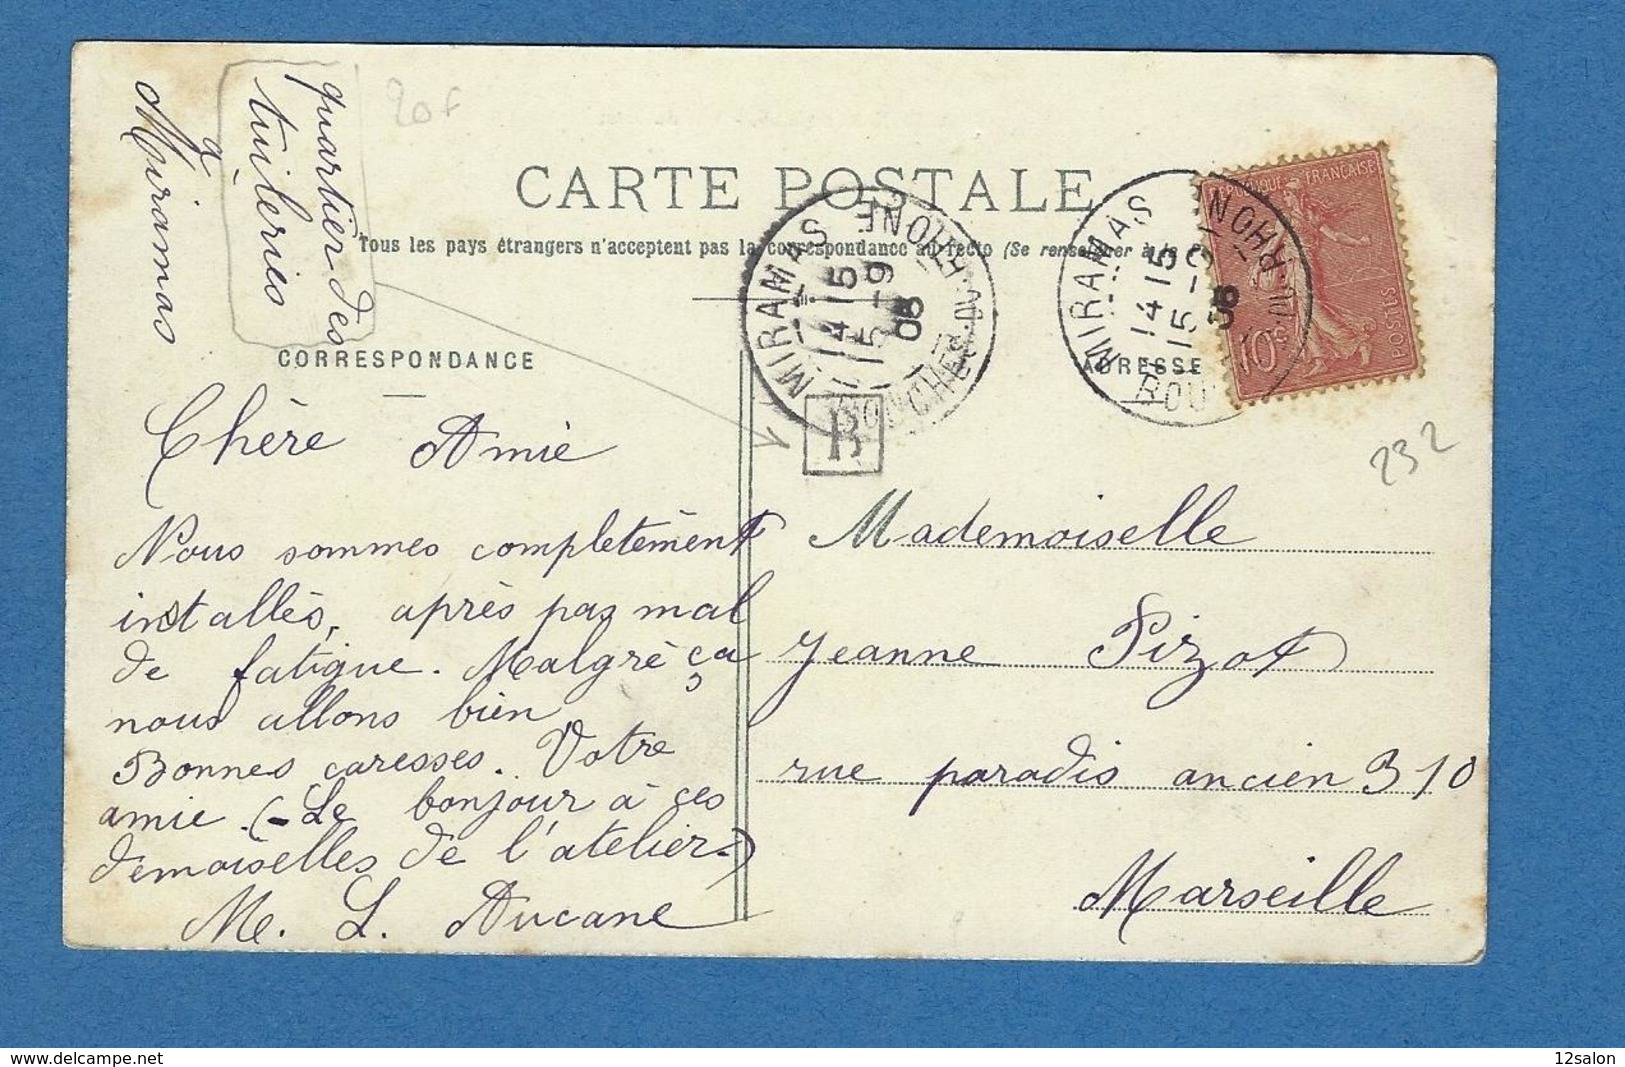 quartier des
tuileries
à
Miramas
20f
CARTE POSTALE
Tous les pays étrangers n'acceptent pas la correspondance au recto (Se renseigner à la
CORRESPONDANCE
ADRESSE
MIRAMAS
14 15
15 -9
06
BOUCHES-DU-RHONE
MIRAMAS
14 15
15 -9
06
BOU DU-RHONE
REPUBLIQUE FRANÇAISE
10c
POSTES
B
232
Chère Amie
Nous sommes completèment
installès, après pas mal
de fatigue. Malgrè ça
nous allons bien
Bonnes caresses. Votre
amie (-Le bonjour à ces
demoiselles de l'atelier-)
Me. L. Aucane
Mademoiselle
Jeanne Pizot
rue paradis ancien 310
Marseille
delcampe.net
12salon